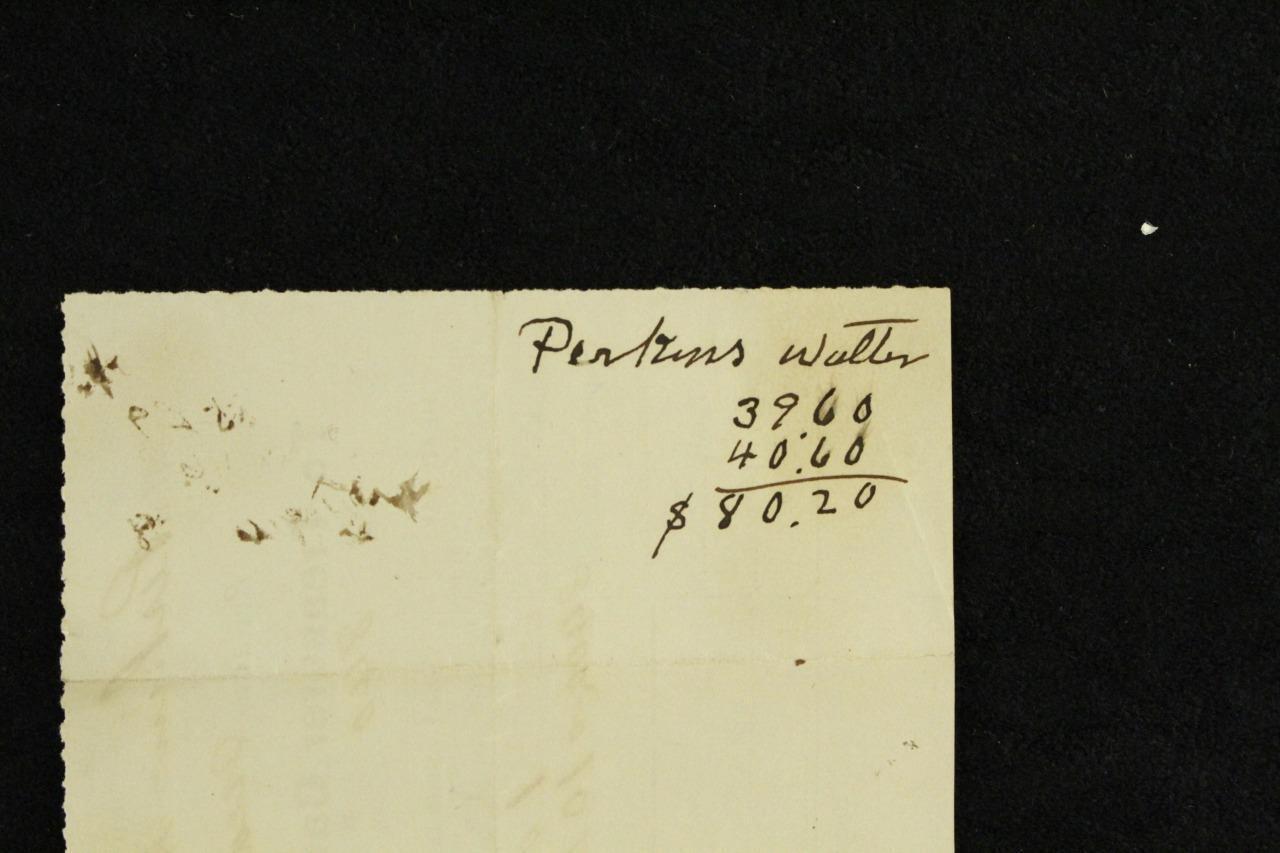 Perkins Walter
39.60
40.60
$ 80.20